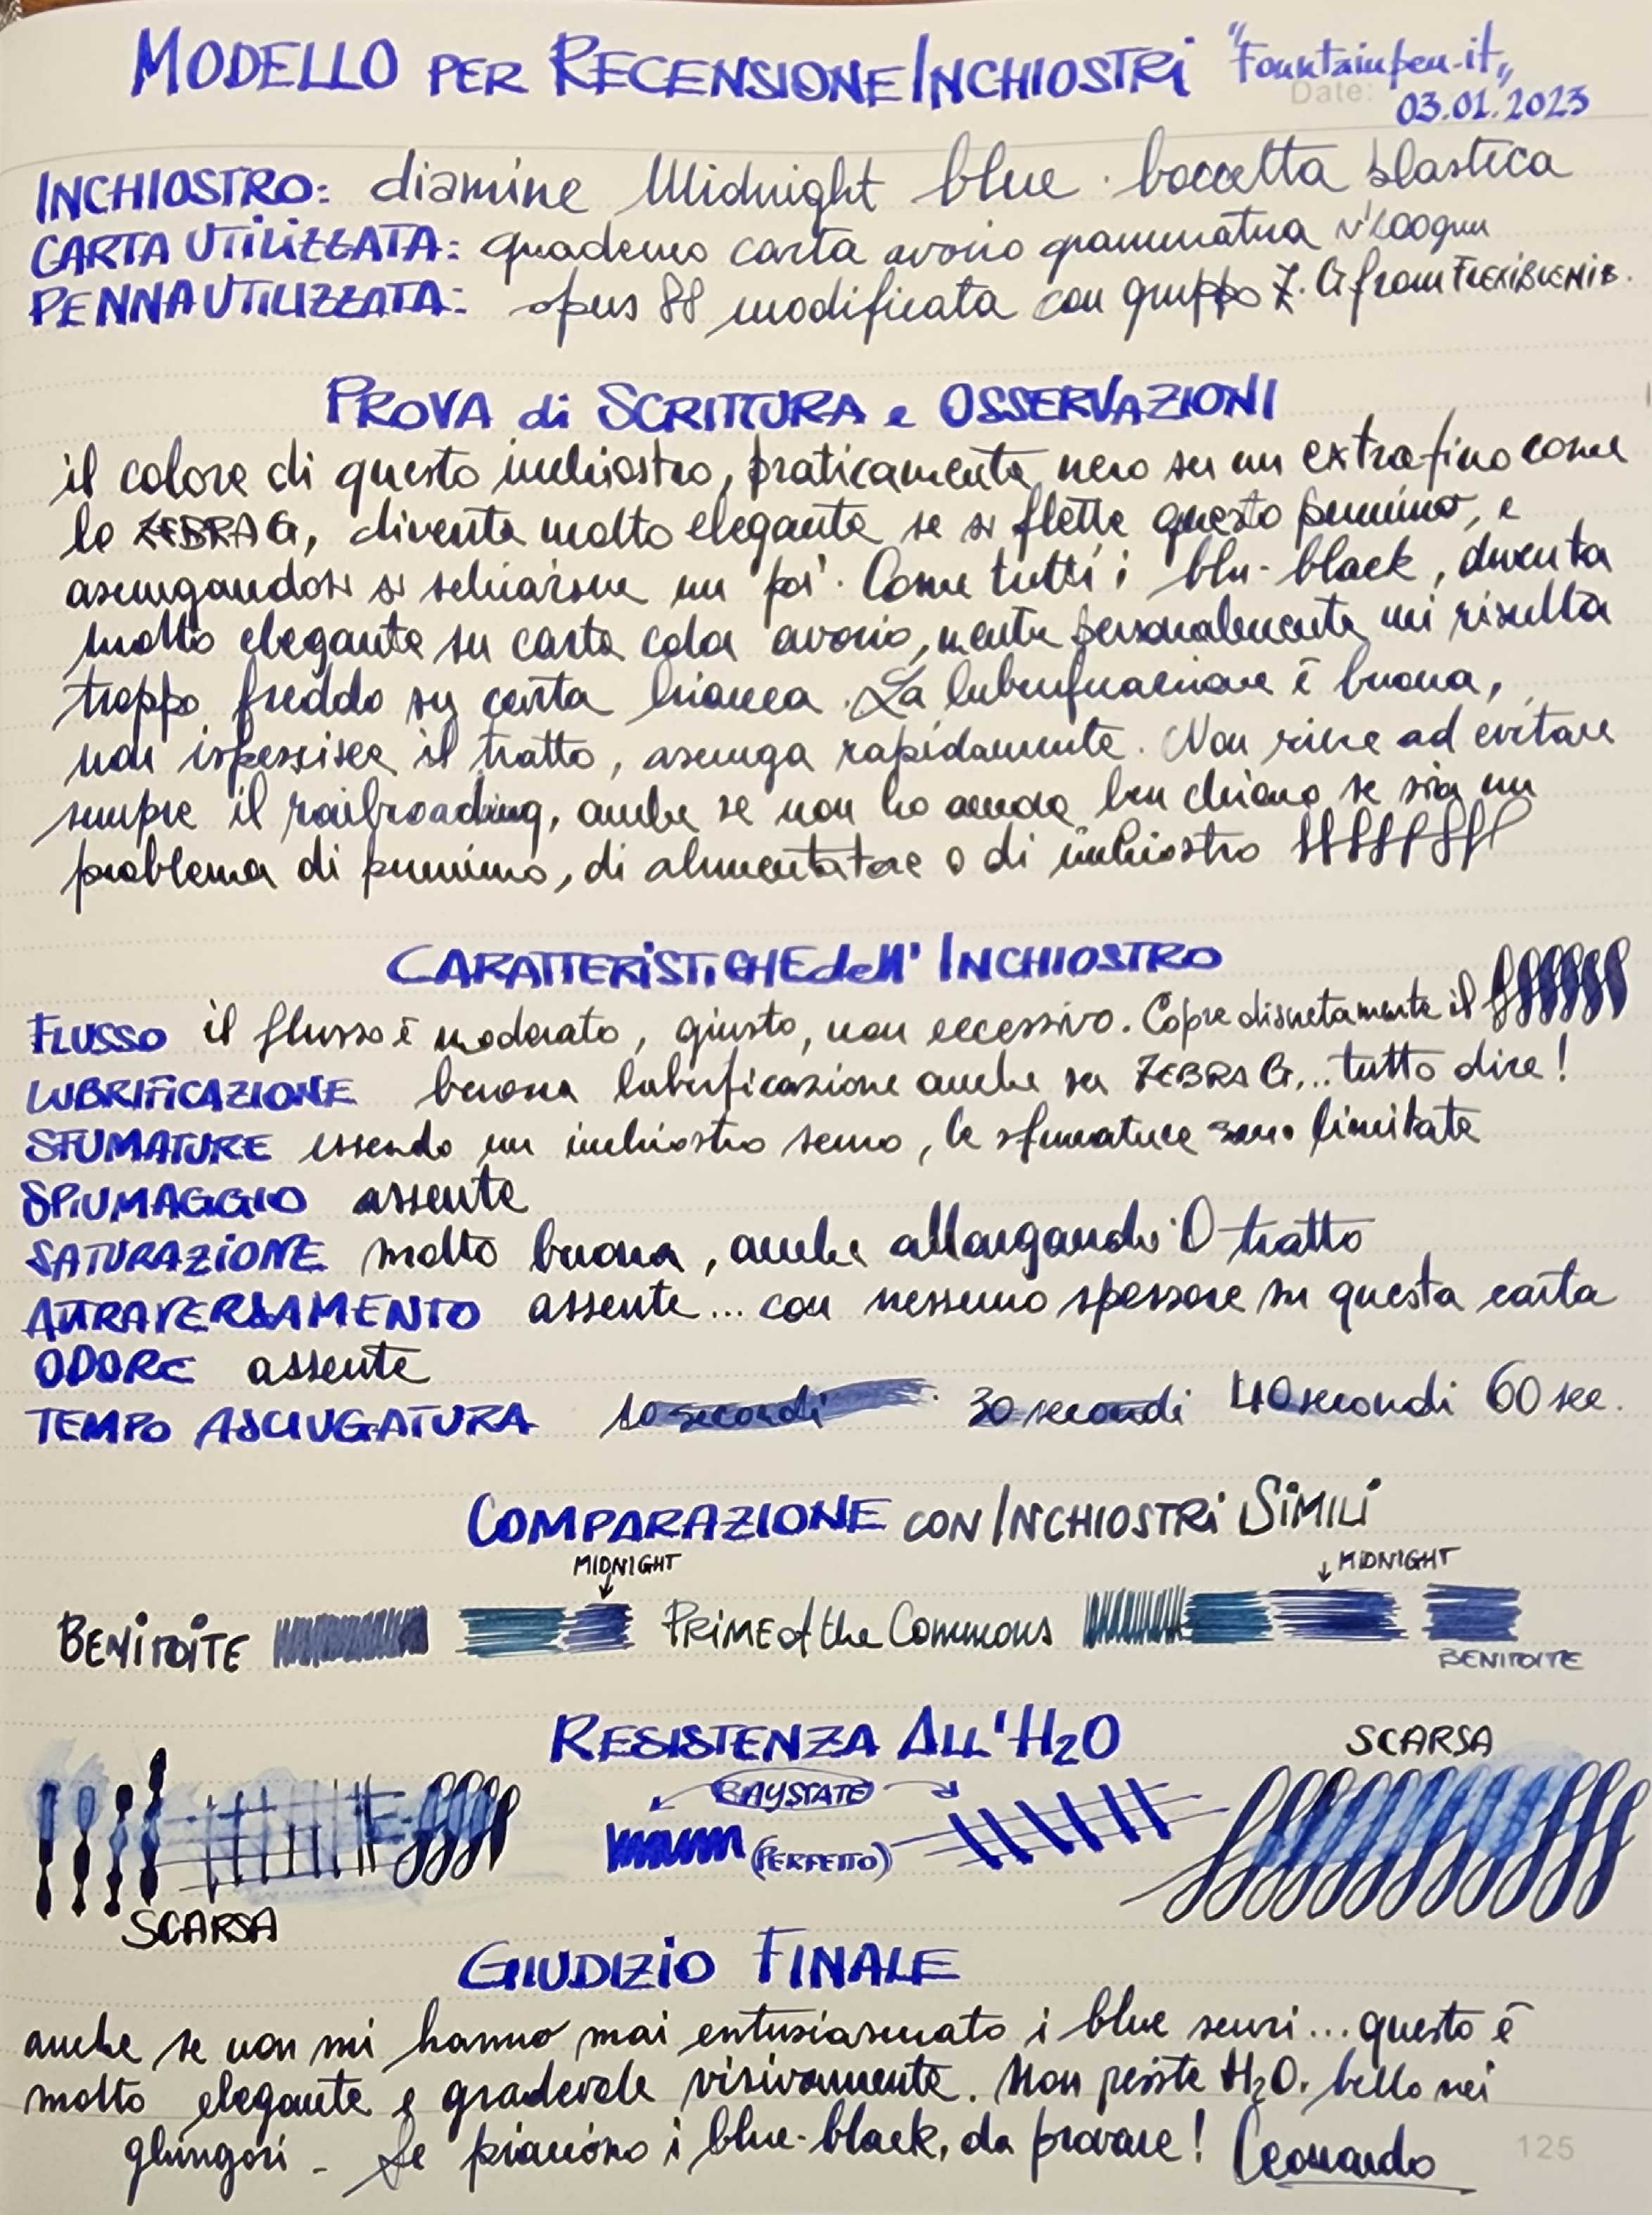 MODELLO PER RECENSIONE INCHIOSTRI "Fountainpen.it"
Date: 03.01.2023
INCHIOSTRO: diamine Midnight blue · boccetta plastica
CARTA UTILIZZATA: quaderno carta avorio grammatura 100gm
PENNA UTILIZZATA: opus 88 modificata con gruppo Z. G from FLEXIBLENIB.
PROVA di SCRITTURA e OSSERVAZIONI
il colore di questo inchiostro, praticamente nero su un extrafino come
lo ZEBRA G, diventa molto elegante se si flette questo pennino, e
asciugandosi si schiarisce un po'. Come tutti i blu-black, diventa
molto elegante su carta color avorio, mentre personalmente mi risulta
troppo freddo su carta bianca. La lubrificazione è buona,
non ispessisce il tratto, asciuga rapidamente. Non riesce ad evitare
sempre il railroading, anche se non ho ancora ben chiaro se sia un
problema di pennino, di alimentatore o di inchiostro
CARATTERISTICHE dell' INCHIOSTRO
FLUSSO il flusso è moderato, giusto, non eccessivo. Copre discretamente il
LUBRIFICAZIONE buona lubrificazione anche su ZEBRA G... tutto dire!
SFUMATURE essendo un inchiostro scuro, le sfumature sono limitate
SPIUMAGGIO assente
SATURAZIONE molto buona, anche allargando il tratto
ATTRAVERSAMENTO assente... con nessuno spessore su questa carta
ODORE assente
TEMPO ASCIUGATURA 10 secondi 30 secondi 40 secondi 60 sec.
COMPARAZIONE CON INCHIOSTRI SIMILI
MIDNIGHT MIDNIGHT
BENITOITE PRIME of the Commons
BENITOITE
RESISTENZA ALL'H2O
SCARSA
BAYSTATE
(PERFETTO)
SCARSA
GIUDIZIO FINALE
anche se non mi hanno mai entusiasmato i blue scuri... questo è
molto elegante e gradevole visivamente. Non resiste H2O. bello nei
ghirigori - Se piacciono i blue-black, da provare! Leonardo
125